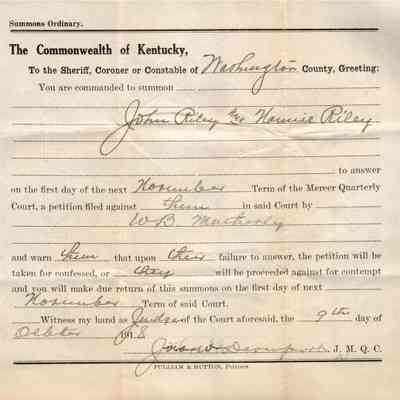 Summons Ordinary.
The Commonwealth of Kentucky,
To the Sheriff, Coroner or Constable of Washington County, Greeting:
You are commanded to summon
John Riley & Riley
to answer
on the first day of the next November Term of the Mercer Quarterly
Court, a petition filed against them in said Court by
W B
and warn them that upon their failure to answer, the petition will be
taken for confessed, or they will be proceeded against for contempt
and you will make due return of this summons on the first day of next
November Term of said Court.
Witness my hand as Judge of the Court aforesaid, the 9th day of
October 1918
J. M. Q. C.
PULLIAM & HUTTON, Printers